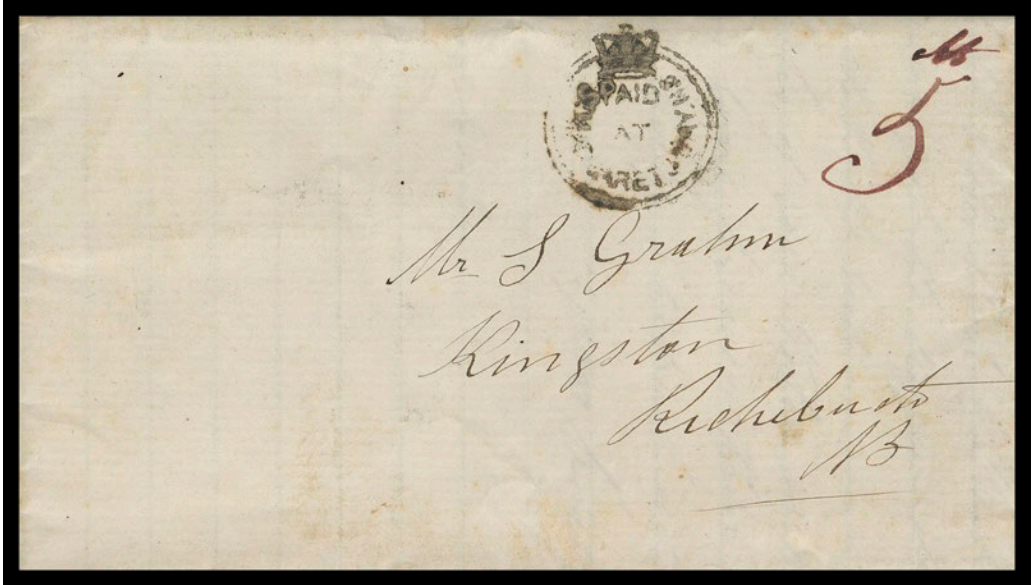 5
PAID
AT
Mr S Grahm
Kingston
Richibucto
NB